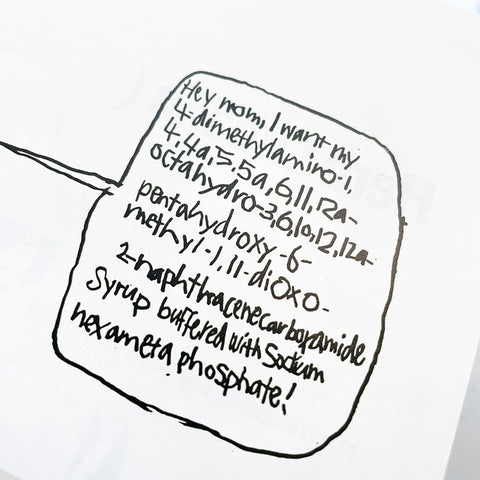 Hey mom, I want my
4-dimethylamino-1,
4,4a,5,5a,6,11,12a-
octahydro-3,6,10,12,12a-
pentahydroxy-6-
methyl-1,11-dioxo-
2-naphthracenecarboxamide
Syrup buffered with Sodium
hexametaphosphate!